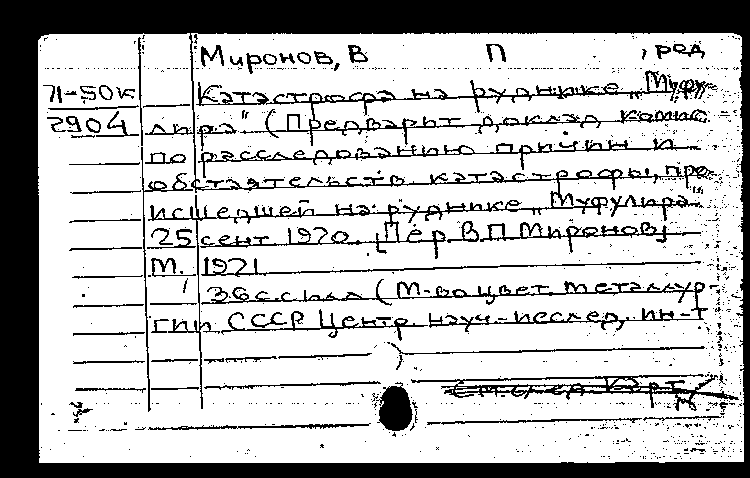 Миронов, В П , ред
71-50к Катастрофа на руднике „Муфу-
2904 лира" (Предварит доклад комис
по расследованию причин и
обстоятельств катастрофы, про-
исшедшей на руднике „Муфулира"
25 сент 1970. [Пер. В.П Миронов]
М. 1971
36 с. с илл (М-во цвет. металлур-
гии СССР Центр. науч.-исслед. ин-т
См. след карт